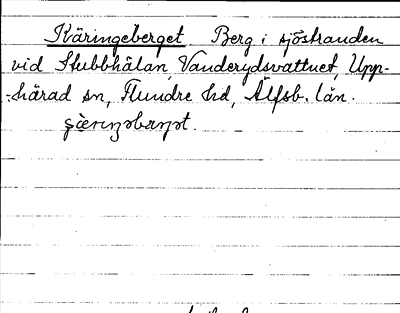 Käringeberget Berg i sjöstranden
vid Stubbhålan, Vanderydsvattnet, Upp-
-härad sn, Flundre hd, Älfsb. län.